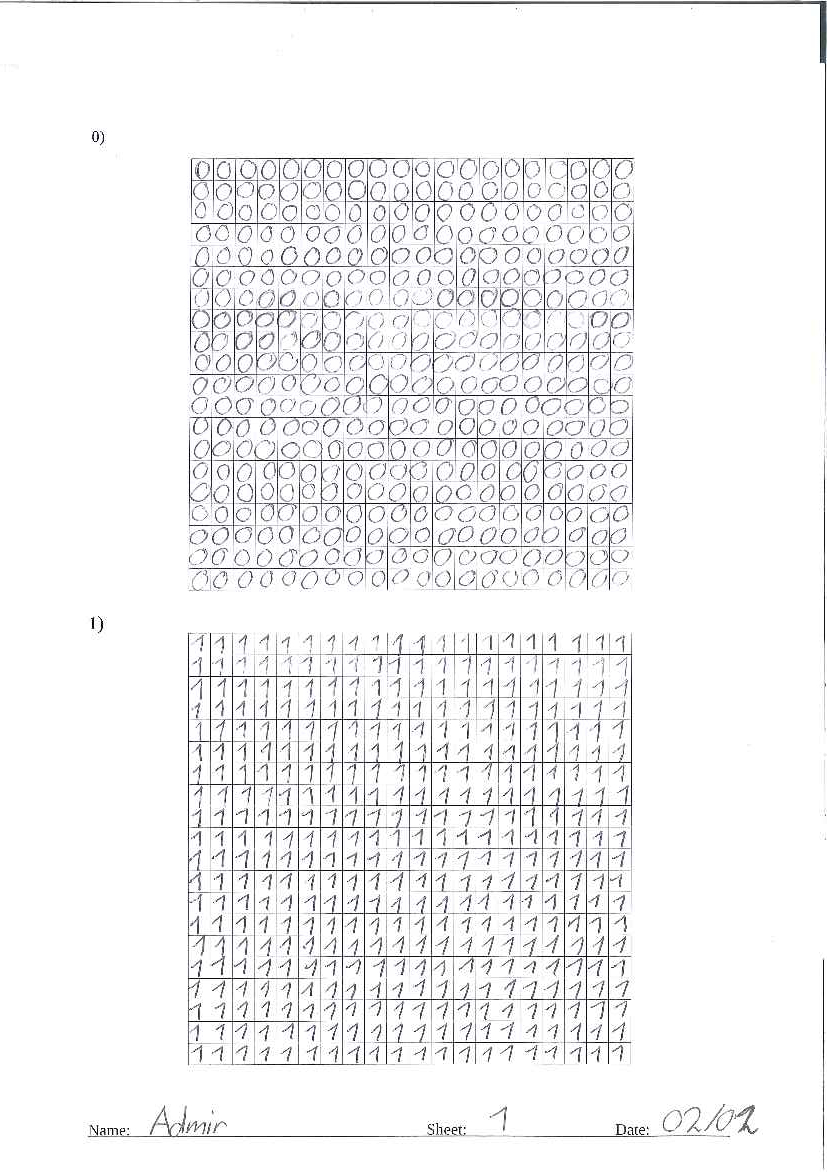 0)
0 0 0 0 0 0 0 0 0 0 0 0 0 0 0 0 0 0 0 0
0 0 0 0 0 0 0 0 0 0 0 0 0 0 0 0 0 0 0 0
0 0 0 0 0 0 0 0 0 0 0 0 0 0 0 0 0 0 0 0
0 0 0 0 0 0 0 0 0 0 0 0 0 0 0 0 0 0 0 0
0 0 0 0 0 0 0 0 0 0 0 0 0 0 0 0 0 0 0 0
0 0 0 0 0 0 0 0 0 0 0 0 0 0 0 0 0 0 0 0
0 0 0 0 0 0 0 0 0 0 0 0 0 0 0 0 0 0 0 0
0 0 0 0 0 0 0 0 0 0 0 0 0 0 0 0 0 0 0 0
0 0 0 0 0 0 0 0 0 0 0 0 0 0 0 0 0 0 0 0
0 0 0 0 0 0 0 0 0 0 0 0 0 0 0 0 0 0 0 0
0 0 0 0 0 0 0 0 0 0 0 0 0 0 0 0 0 0 0 0
0 0 0 0 0 0 0 0 0 0 0 0 0 0 0 0 0 0 0 0
0 0 0 0 0 0 0 0 0 0 0 0 0 0 0 0 0 0 0 0
0 0 0 0 0 0 0 0 0 0 0 0 0 0 0 0 0 0 0 0
0 0 0 0 0 0 0 0 0 0 0 0 0 0 0 0 0 0 0 0
0 0 0 0 0 0 0 0 0 0 0 0 0 0 0 0 0 0 0 0
0 0 0 0 0 0 0 0 0 0 0 0 0 0 0 0 0 0 0 0
0 0 0 0 0 0 0 0 0 0 0 0 0 0 0 0 0 0 0 0
0 0 0 0 0 0 0 0 0 0 0 0 0 0 0 0 0 0 0 0
0 0 0 0 0 0 0 0 0 0 0 0 0 0 0 0 0 0 0 0
1)
1 1 1 1 1 1 1 1 1 1 1 1 1 1 1 1 1 1 1 1
1 1 1 1 1 1 1 1 1 1 1 1 1 1 1 1 1 1 1 1
1 1 1 1 1 1 1 1 1 1 1 1 1 1 1 1 1 1 1 1
1 1 1 1 1 1 1 1 1 1 1 1 1 1 1 1 1 1 1 1
1 1 1 1 1 1 1 1 1 1 1 1 1 1 1 1 1 1 1 1
1 1 1 1 1 1 1 1 1 1 1 1 1 1 1 1 1 1 1 1
1 1 1 1 1 1 1 1 1 1 1 1 1 1 1 1 1 1 1 1
1 1 1 1 1 1 1 1 1 1 1 1 1 1 1 1 1 1 1 1
1 1 1 1 1 1 1 1 1 1 1 1 1 1 1 1 1 1 1 1
1 1 1 1 1 1 1 1 1 1 1 1 1 1 1 1 1 1 1 1
1 1 1 1 1 1 1 1 1 1 1 1 1 1 1 1 1 1 1 1
1 1 1 1 1 1 1 1 1 1 1 1 1 1 1 1 1 1 1 1
1 1 1 1 1 1 1 1 1 1 1 1 1 1 1 1 1 1 1 1
1 1 1 1 1 1 1 1 1 1 1 1 1 1 1 1 1 1 1 1
1 1 1 1 1 1 1 1 1 1 1 1 1 1 1 1 1 1 1 1
1 1 1 1 1 1 1 1 1 1 1 1 1 1 1 1 1 1 1 1
1 1 1 1 1 1 1 1 1 1 1 1 1 1 1 1 1 1 1 1
1 1 1 1 1 1 1 1 1 1 1 1 1 1 1 1 1 1 1 1
1 1 1 1 1 1 1 1 1 1 1 1 1 1 1 1 1 1 1 1
1 1 1 1 1 1 1 1 1 1 1 1 1 1 1 1 1 1 1 1
Name: Admir Sheet: 1 Date: 02/02